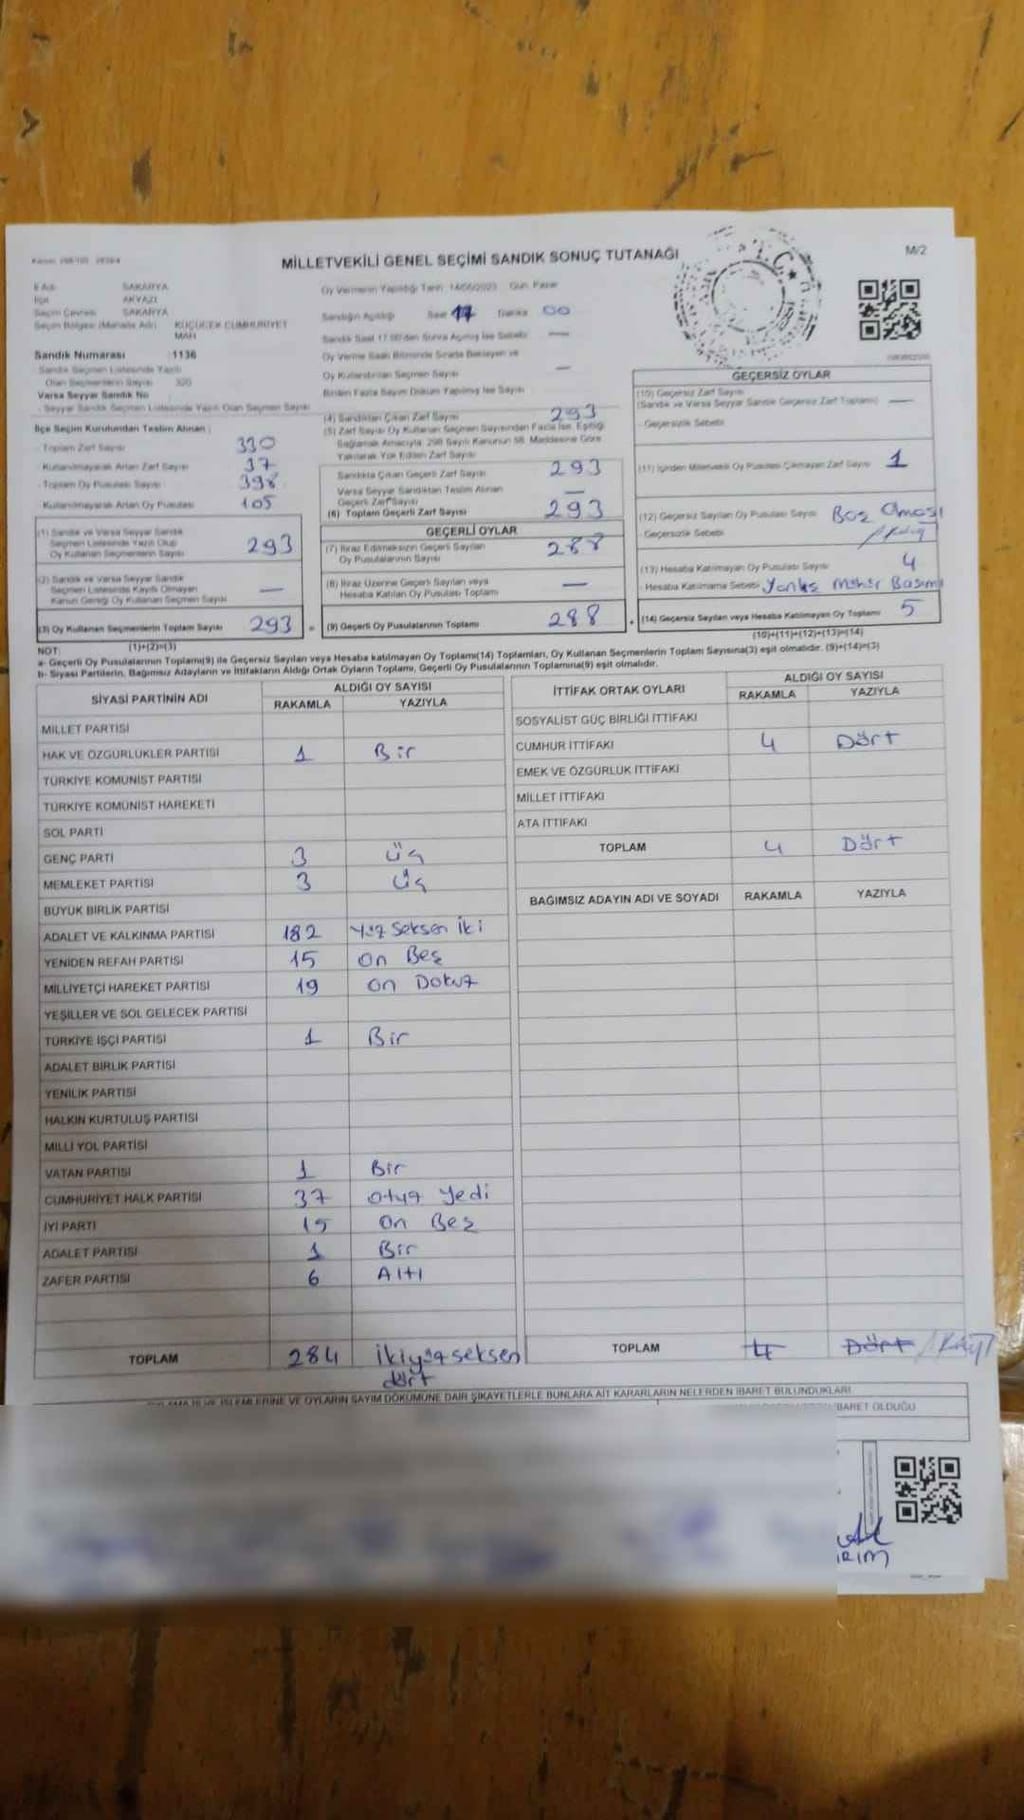 MİLLETVEKİLİ GENEL SEÇİMİ SANDIK SONUÇ TUTANAĞI
M/2
İl Adı SAKARYA
İlçe AKYAZI
Seçim Çevresi SAKARYA
Seçim Bölgesi (Mahalle Adı) KÜÇÜCEK CUMHURİYET
MAH
Sandık Numarası 1136
Sandık Seçmen Listesinde Yazılı
Olan Seçmenlerin Sayısı 320
Varsa Seyyar Sandık No
- Seyyar Sandık Seçmen Listesinde Yazılı Olan Seçmen Sayısı
İlçe Seçim Kurulundan Teslim Alınan :
- Toplam Zarf Sayısı 330
- Kullanılmayarak Artan Zarf Sayısı 37
- Toplam Oy Pusulası Sayısı 398
Kullanılmayarak Artan Oy Pusulası 105
(1) Sandık ve Varsa Seyyar Sandık
Seçmen Listesinde Yazılı Olup
Oy Kullanan Seçmenlerin Sayısı 293
(2) Sandık ve Varsa Seyyar Sandık
Seçmen Listesinde Kayıtlı Olmayan
Kanun Gereği Oy Kullanan Seçmen Sayısı —
(3) Oy Kullanan Seçmenlerin Toplam Sayısı 293
(1)+(2)=(3)
Oy Vermenin Yapıldığı Tarih 14/05/2023 Gün Pazar
Sandığın Açıldığı Saat 17 Dakika 00
Sandık Saat 17.00'den Sonra Açılmış İse Sebebi —
Oy Verme Saati Bitiminde Sırada Bekleyen ve
Oy Kullandırılan Seçmen Sayısı —
Birden Fazla Sayım Döküm Yapılmış İse Sayısı
(4) Sandıktan Çıkan Zarf Sayısı 293
(5) Zarf Sayısı Oy Kullanan Seçmen Sayısından Fazla İse, Eşitliği
Sağlamak Amacıyla 298 Sayılı Kanunun 98. Maddesine Göre
Yakılarak Yok Edilen Zarf Sayısı
Sandıkta Çıkan Geçerli Zarf Sayısı 293
Varsa Seyyar Sandıktan Teslim Alınan
Geçerli Zarf Sayısı —
(6) Toplam Geçerli Zarf Sayısı 293
GEÇERLİ OYLAR
(7) İtiraz Edilmeksizin Geçerli Sayılan
Oy Pusulalarının Sayısı 288
(8) İtiraz Üzerine Geçerli Sayılan veya
Hesaba Katılan Oy Pusulası Toplamı —
(9) Geçerli Oy Pusulalarının Toplamı 288
GEÇERSİZ OYLAR
(10) Geçersiz Zarf Sayısı
(Sandık ve Varsa Seyyar Sandık Geçersiz Zarf Toplamı) —
- Geçersizlik Sebebi
(11) İçinden Milletvekili Oy Pusulası Çıkmayan Zarf Sayısı 1
(12) Geçersiz Sayılan Oy Pusulası Sayısı Boş Olması
- Geçersizlik Sebebi
(13) Hesaba Katılmayan Oy Pusulası Sayısı 4
- Hesaba Katılmama Sebebi Yanlış Mühür Basımı
(14) Geçersiz Sayılan veya Hesaba Katılmayan Oy Toplamı 5
(10)+(11)+(12)+(13)=(14)
NOT:
a- Geçerli Oy Pusulalarının Toplamı(9) ile Geçersiz Sayılan veya Hesaba katılmayan Oy Toplamı(14) Toplamları, Oy Kullanan Seçmenlerin Toplam Sayısına(3) eşit olmalıdır. (9)+(14)=(3)
b- Siyasi Partilerin, Bağımsız Adayların ve İttifakların Aldığı Ortak Oyların Toplamı, Geçerli Oy Pusulalarının Toplamına(9) eşit olmalıdır.
SİYASİ PARTİNİN ADI ALDIĞI OY SAYISI
RAKAMLA YAZIYLA
MİLLET PARTİSİ
HAK VE ÖZGÜRLÜKLER PARTİSİ 1 Bir
TÜRKİYE KOMÜNİST PARTİSİ
TÜRKİYE KOMÜNİST HAREKETİ
SOL PARTİ
GENÇ PARTİ 3 Üç
MEMLEKET PARTİSİ 3 Üç
BÜYÜK BİRLİK PARTİSİ
ADALET VE KALKINMA PARTİSİ 182 Yüz Seksen İki
YENİDEN REFAH PARTİSİ 15 On Beş
MİLLİYETÇİ HAREKET PARTİSİ 19 On Dokuz
YEŞİLLER VE SOL GELECEK PARTİSİ
TÜRKİYE İŞÇİ PARTİSİ 1 Bir
ADALET BİRLİK PARTİSİ
YENİLİK PARTİSİ
HALKIN KURTULUŞ PARTİSİ
MİLLİ YOL PARTİSİ
VATAN PARTİSİ 1 Bir
CUMHURİYET HALK PARTİSİ 37 Otuz Yedi
İYİ PARTİ 15 On Beş
ADALET PARTİSİ 1 Bir
ZAFER PARTİSİ 6 Altı
TOPLAM 284 İkiyüzseksen
dört
İTTİFAK ORTAK OYLARI ALDIĞI OY SAYISI
RAKAMLA YAZIYLA
SOSYALİST GÜÇ BİRLİĞİ İTTİFAKI
CUMHUR İTTİFAKI 4 Dört
EMEK VE ÖZGÜRLÜK İTTİFAKI
MİLLET İTTİFAKI
ATA İTTİFAKI
TOPLAM 4 Dört
BAĞIMSIZ ADAYIN ADI VE SOYADI RAKAMLA YAZIYLA
TOPLAM 4 Dört
VE OYLARIN SAYIM DÖKÜMÜNE DAİR ŞİKAYETLERLE BUNLARA AİT KARARLARIN NELERDEN İBARET BULUNDUKLARI
İBARET OLDUĞU